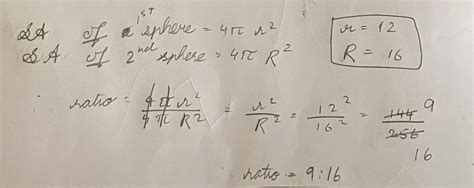 SA of 1st sphere = 4π r²
SA of 2nd sphere = 4π R²
r = 12
R = 16
∴ ratio = 4πr²/4πR² = r²/R² = 12²/16² = 144/256 9/16
∴ ratio = 9:16